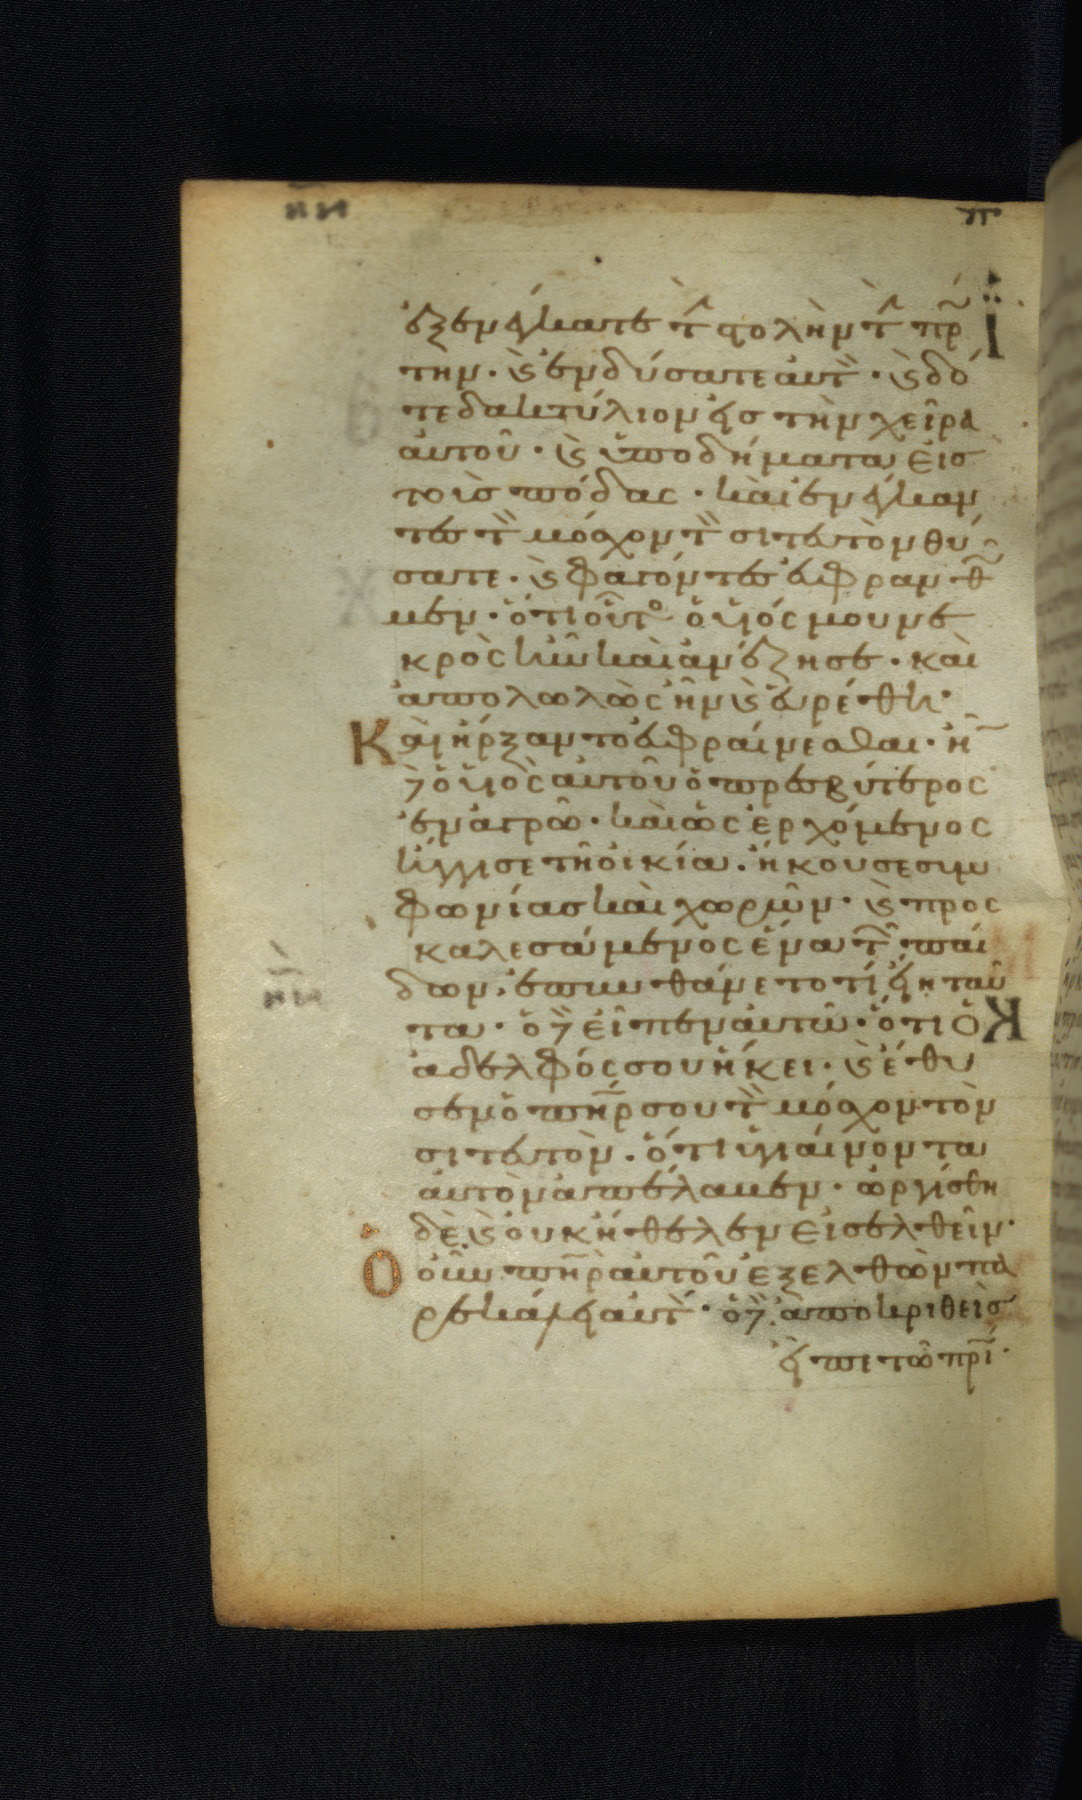 ἐξενέγκατε τ̂ στολὴν τ̂ πρώ
την · ϗ ἐνδύσατε αὐτ̏ · ϗ δό
τε δακτύλιον εἰς τὴν χεῖρα
αὐτοῦ · ϗ ὑποδήματα εἰς
τοὺς πόδας · καὶ ἐνέγκαν
τες τ̏ μόσχον τ̏ σιτευτὸν θύ
σατε · ϗ φαγόντες εὐφρανθῶ
μεν · ὅτι οὗτο ὁ υἱός μου νε
κρὸς ἦν καὶ ἀνέζησε · καὶ
ἀπολωλὼς ἦν ϗ εὑρέθη ·
Καὶ ἤρξαντο εὐφραίνεσθαι · ἦ
δ ὁ υἱὸς αὐτοῦ ὁ πρεσβύτερος
ἐν ἀγρῶ · καὶ ὡς ἐρχόμενος
ἤγγισε τῆ οἰκία · ἤκουσε συμ
φωνίας καὶ χορῶν · ϗ προς
καλεσάμενος ἕνα τ̂ παί
δων · ἐπυνθάνετο τί εἴη ταῦ
τα · ὁ δ εἶπεν αὐτῶ · ὅτι ὁ
ἀδελφός σου ἥκει · ϗ ἔθυ
σεν ὁ πηρ σου τ̏ μόσχον τὸν
σιτευτὸν · ὅτι ὑγιαίνοντα
αὐτὸν ἀπέλαβεν · ὠργίσθη
δὲ ϗ οὐκ ἤθελεν εἰσελθεῖν ·
Ὁ οὖν πηρ αὐτοῦ ἐξελθὼν πα
ρεκάλει αὐτ̀ · ὁ δ ἀποκριθεὶς
εἶπε τῶ πρι ·